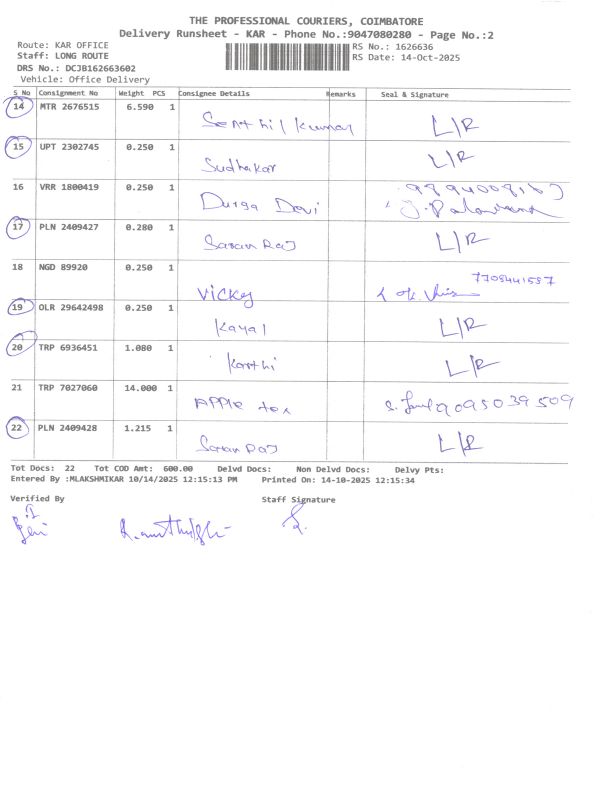 THE PROFESSIONAL COURIERS, COIMBATORE
Delivery Runsheet - KAR - Phone No.:9047080280 - Page No.:2
Route: KAR OFFICE RS No.: 1626636
Staff: LONG ROUTE RS Date: 14-Oct-2025
DRS No.: DCJB162663602
Vehicle: Office Delivery
S No Consignment No Weight PCS Consignee Details Remarks Seal & Signature
14 MTR 2676515 6.590 1 Senthil kumar L/R
15 UPT 2302745 0.250 1 Sudhakar L/R
16 VRR 1800419 0.250 1 Durga Devi
17 PLN 2409427 0.280 1 Saran Raj L/R
18 NGD 89920 0.250 1 Vicky 7708441587
19 OLR 29642498 0.250 1 Kayal L/R
20 TRP 6936451 1.080 1 Karthi L/R
21 TRP 7027060 14.000 1 Apple tex 9095039509
22 PLN 2409428 1.215 1 Saran Raj L/R
Tot Docs: 22 Tot COD Amt: 600.00 Delvd Docs: Non Delvd Docs: Delvy Pts:
Entered By :MLAKSHMIKAR 10/14/2025 12:15:13 PM Printed On: 14-10-2025 12:15:34
Verified By Staff Signature